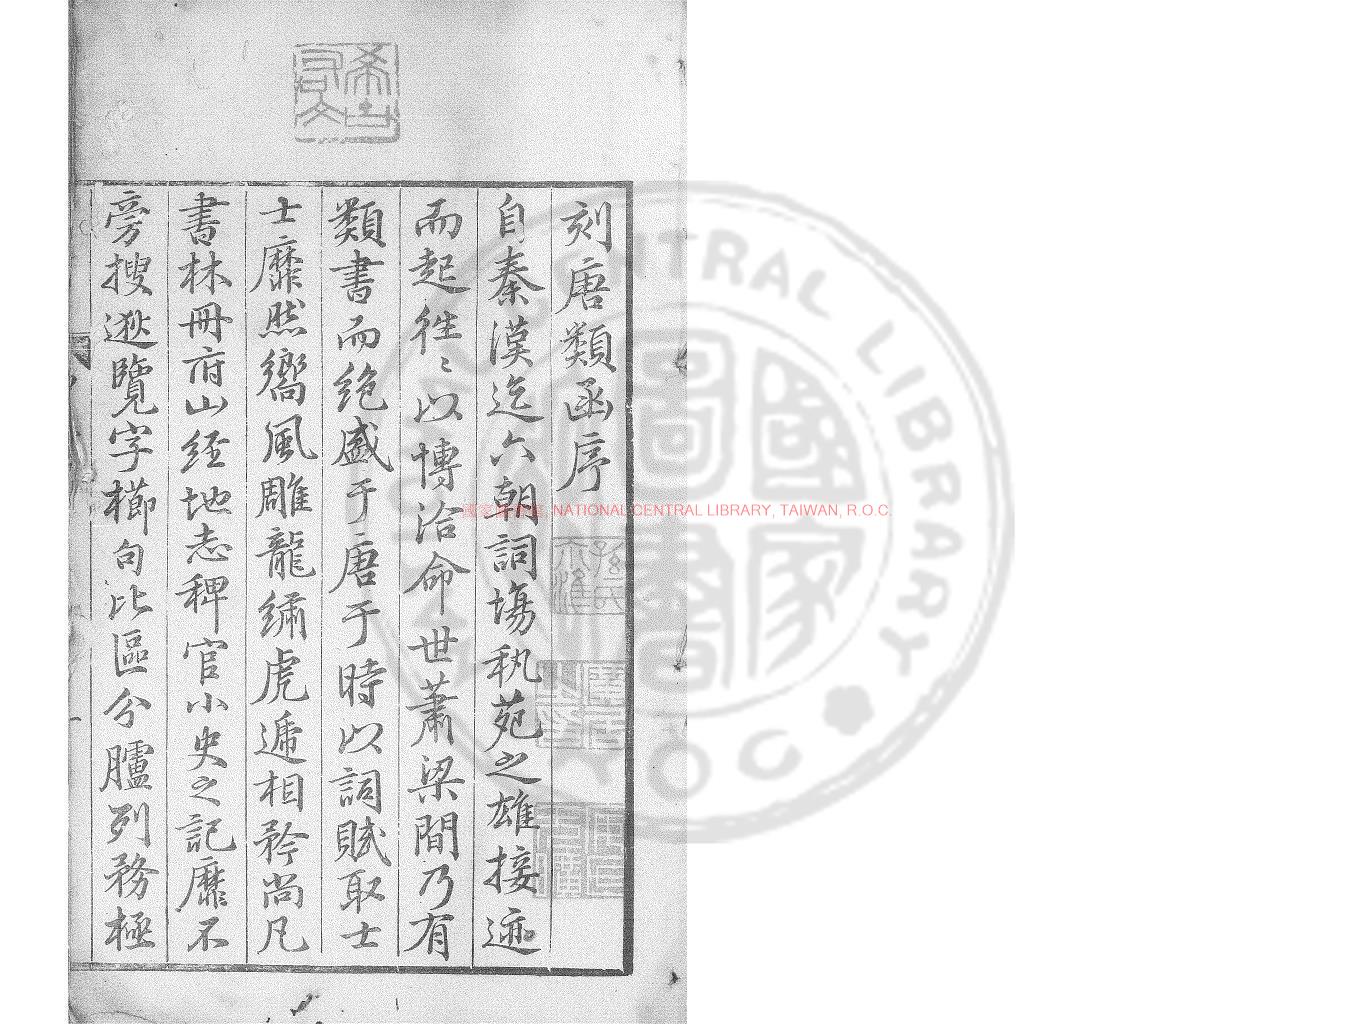 刻唐類函序
自秦漢迄六朝詞塲秇苑之雄接迹
而起徃〻以博洽命世蕭梁間乃有
類書而絶盛于唐于時以詞賦取士
士靡然嚮風雕龍繡虎遞相矜尚凡
書林冊府山経地志稗官小史之記靡不
旁搜逖覽字櫛句比區分臚列務極
希古
右文
NATIONAL CENTRAL LIBRARY, TAIWAN, R.O.C
CENTRAL LIBRARY
ROC
國家圖書